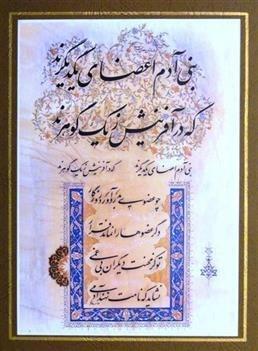 بنی آدم اعضای یکدیگرند
که در آفرینش ز یک گوهرند
بنی آدم اعضای یکدیگرند که در آفرینش ز یک گوهرند
چو عضوی بدرد آورد روزگار
دگر عضوها را نماند قرار
تو کز محنت دیگران بی غمی
نشاید که نامت نهند آدمی